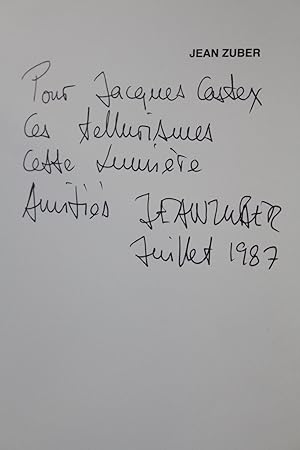 JEAN ZUBER
Pour Jacques Castex
Ces tellurismes
Cette Lumière
Amitiés JEAN ZUBER
Juillet 1987